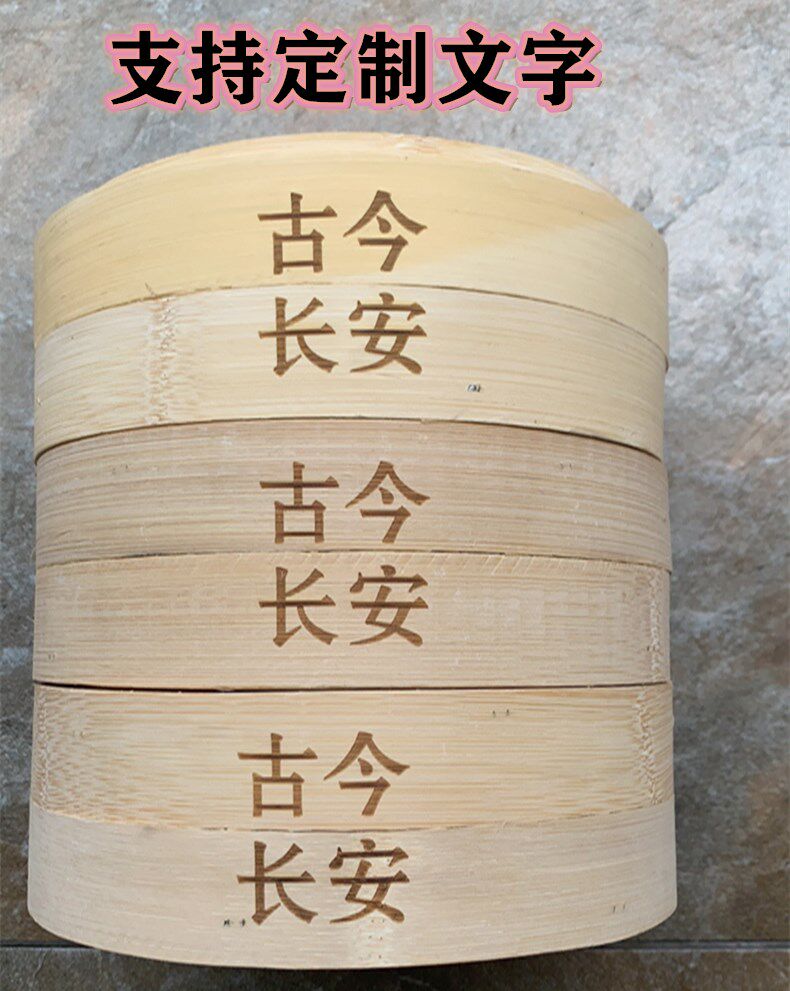 支持定制文字
古今
长安
古今
长安
古今
长安